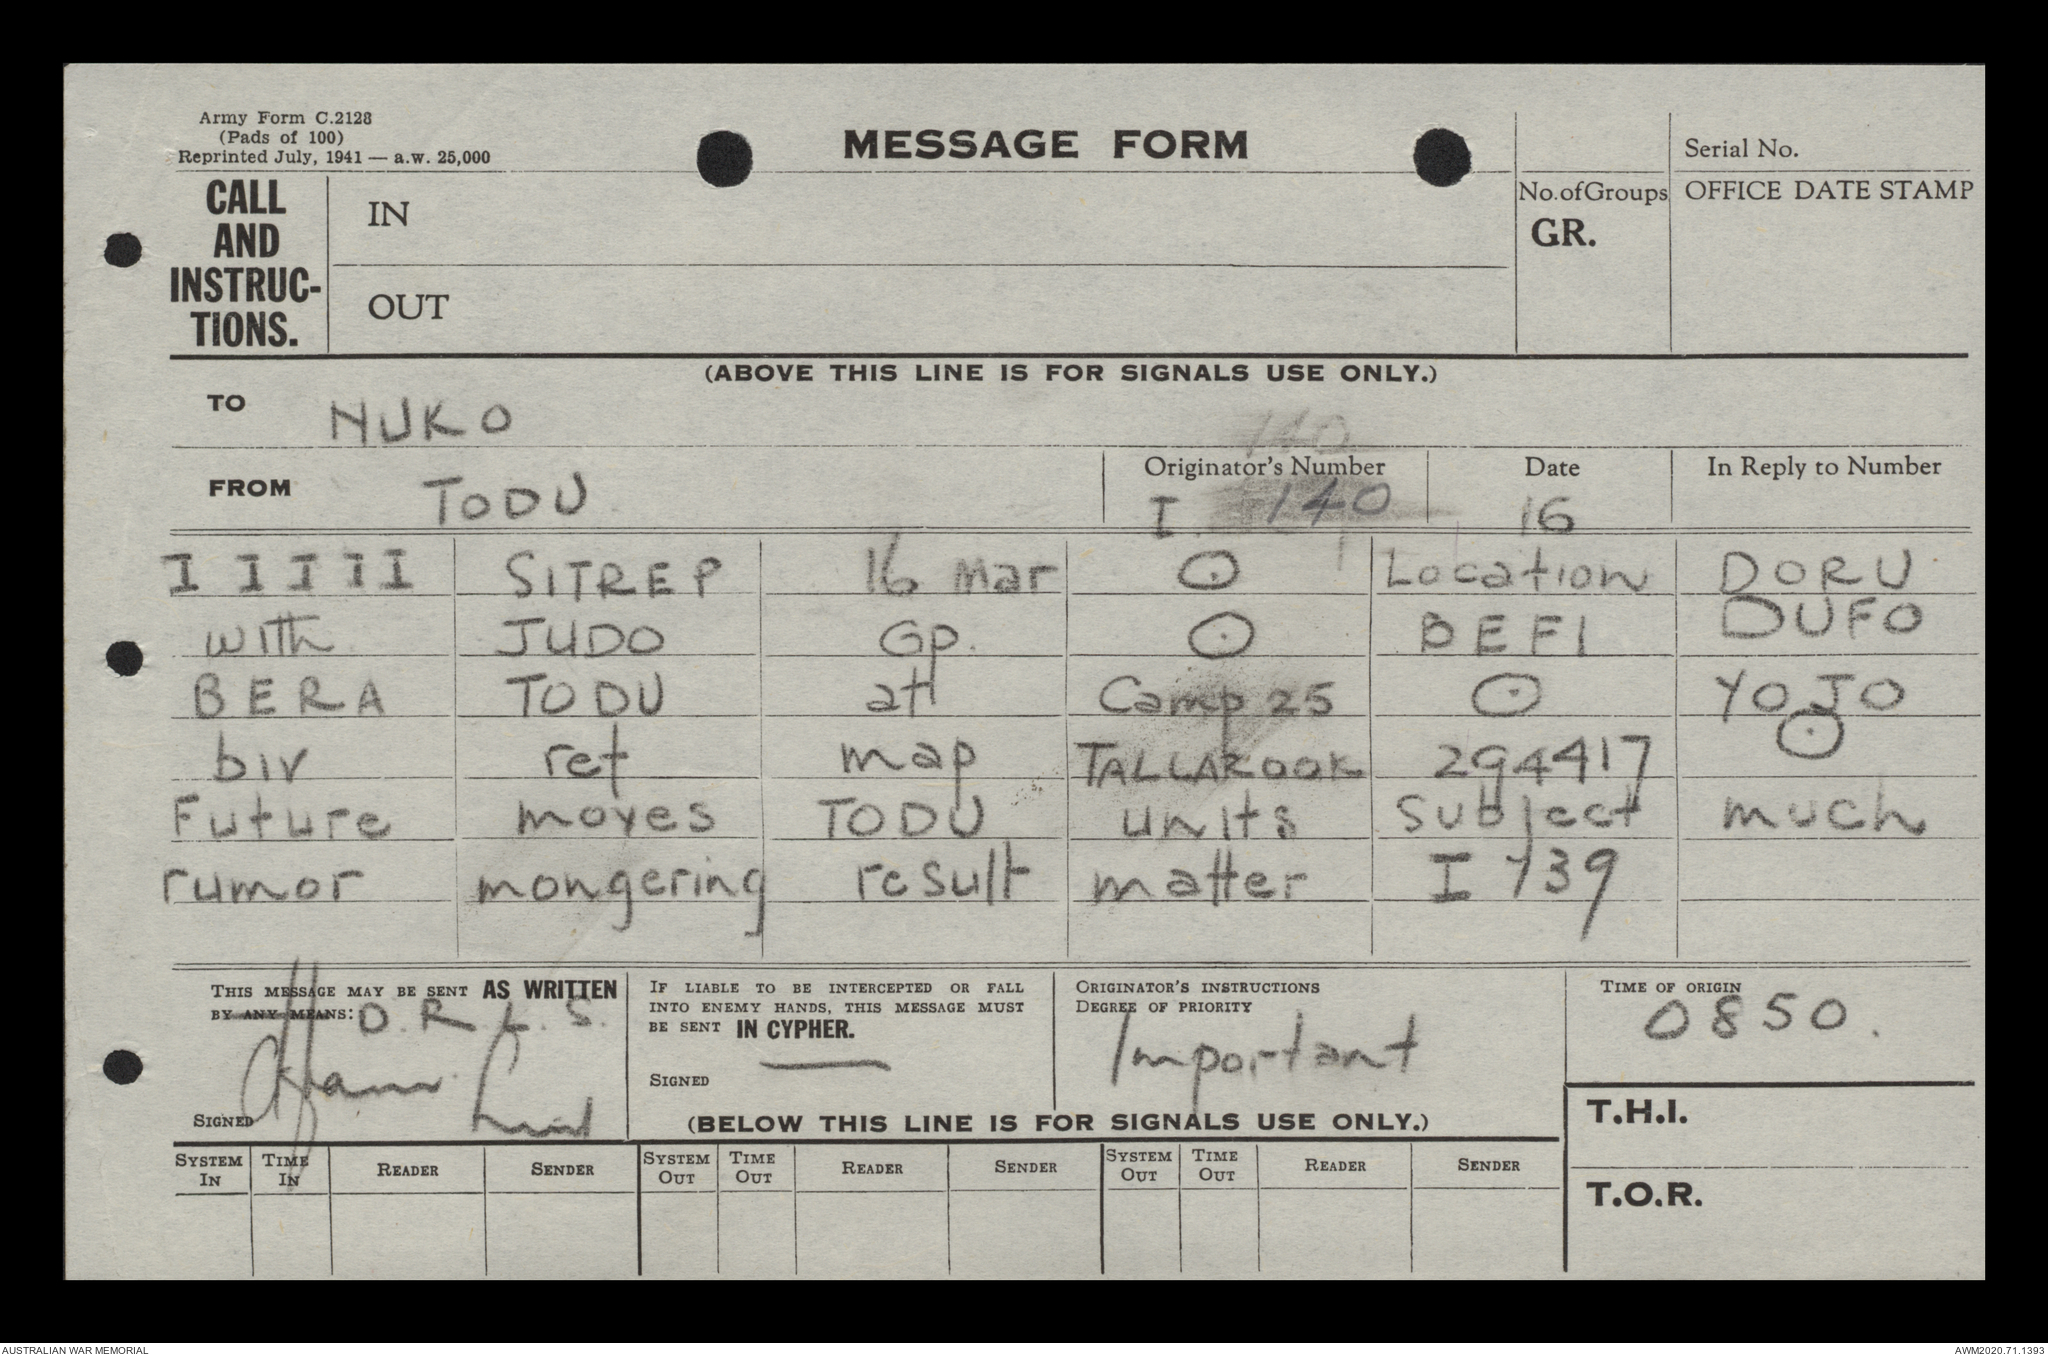 Army Form C.2128
(Pads of 100)
Reprinted July, 1941 — a.w. 25,000
MESSAGE FORM
Serial No.
CALL AND INSTRUC-TIONS.
IN
OUT
No. of Groups
GR.
OFFICE DATE STAMP
(ABOVE THIS LINE IS FOR SIGNALS USE ONLY.)
TO NUKO
140
FROM TODU
Originator's Number
I 140
Date
16
In Reply to Number
I I I I I SITREP 16 Mar ⊙ Location DORU
with JUDO Gp. ⊙ BEFI DUFO
BERA TODU at Camp 25 ⊙ YOJO
biv ref map TALLAROOK 294417 ⊙
Future moves TODU units subject much
rumor mongering result matter I 139
THIS MESSAGE MAY BE SENT AS WRITTEN
BY ANY MEANS: D.R.L.S.
SIGNED
IF LIABLE TO BE INTERCEPTED OR FALL
INTO ENEMY HANDS, THIS MESSAGE MUST
BE SENT IN CYPHER.
SIGNED
ORIGINATOR'S INSTRUCTIONS
DEGREE OF PRIORITY
Important
TIME OF ORIGIN
0850.
(BELOW THIS LINE IS FOR SIGNALS USE ONLY.)
T.H.I.
T.O.R.
SYSTEM IN TIME IN READER SENDER SYSTEM OUT TIME OUT READER SENDER SYSTEM OUT TIME OUT READER SENDER
AUSTRALIAN WAR MEMORIAL
AWM2020.71.1393